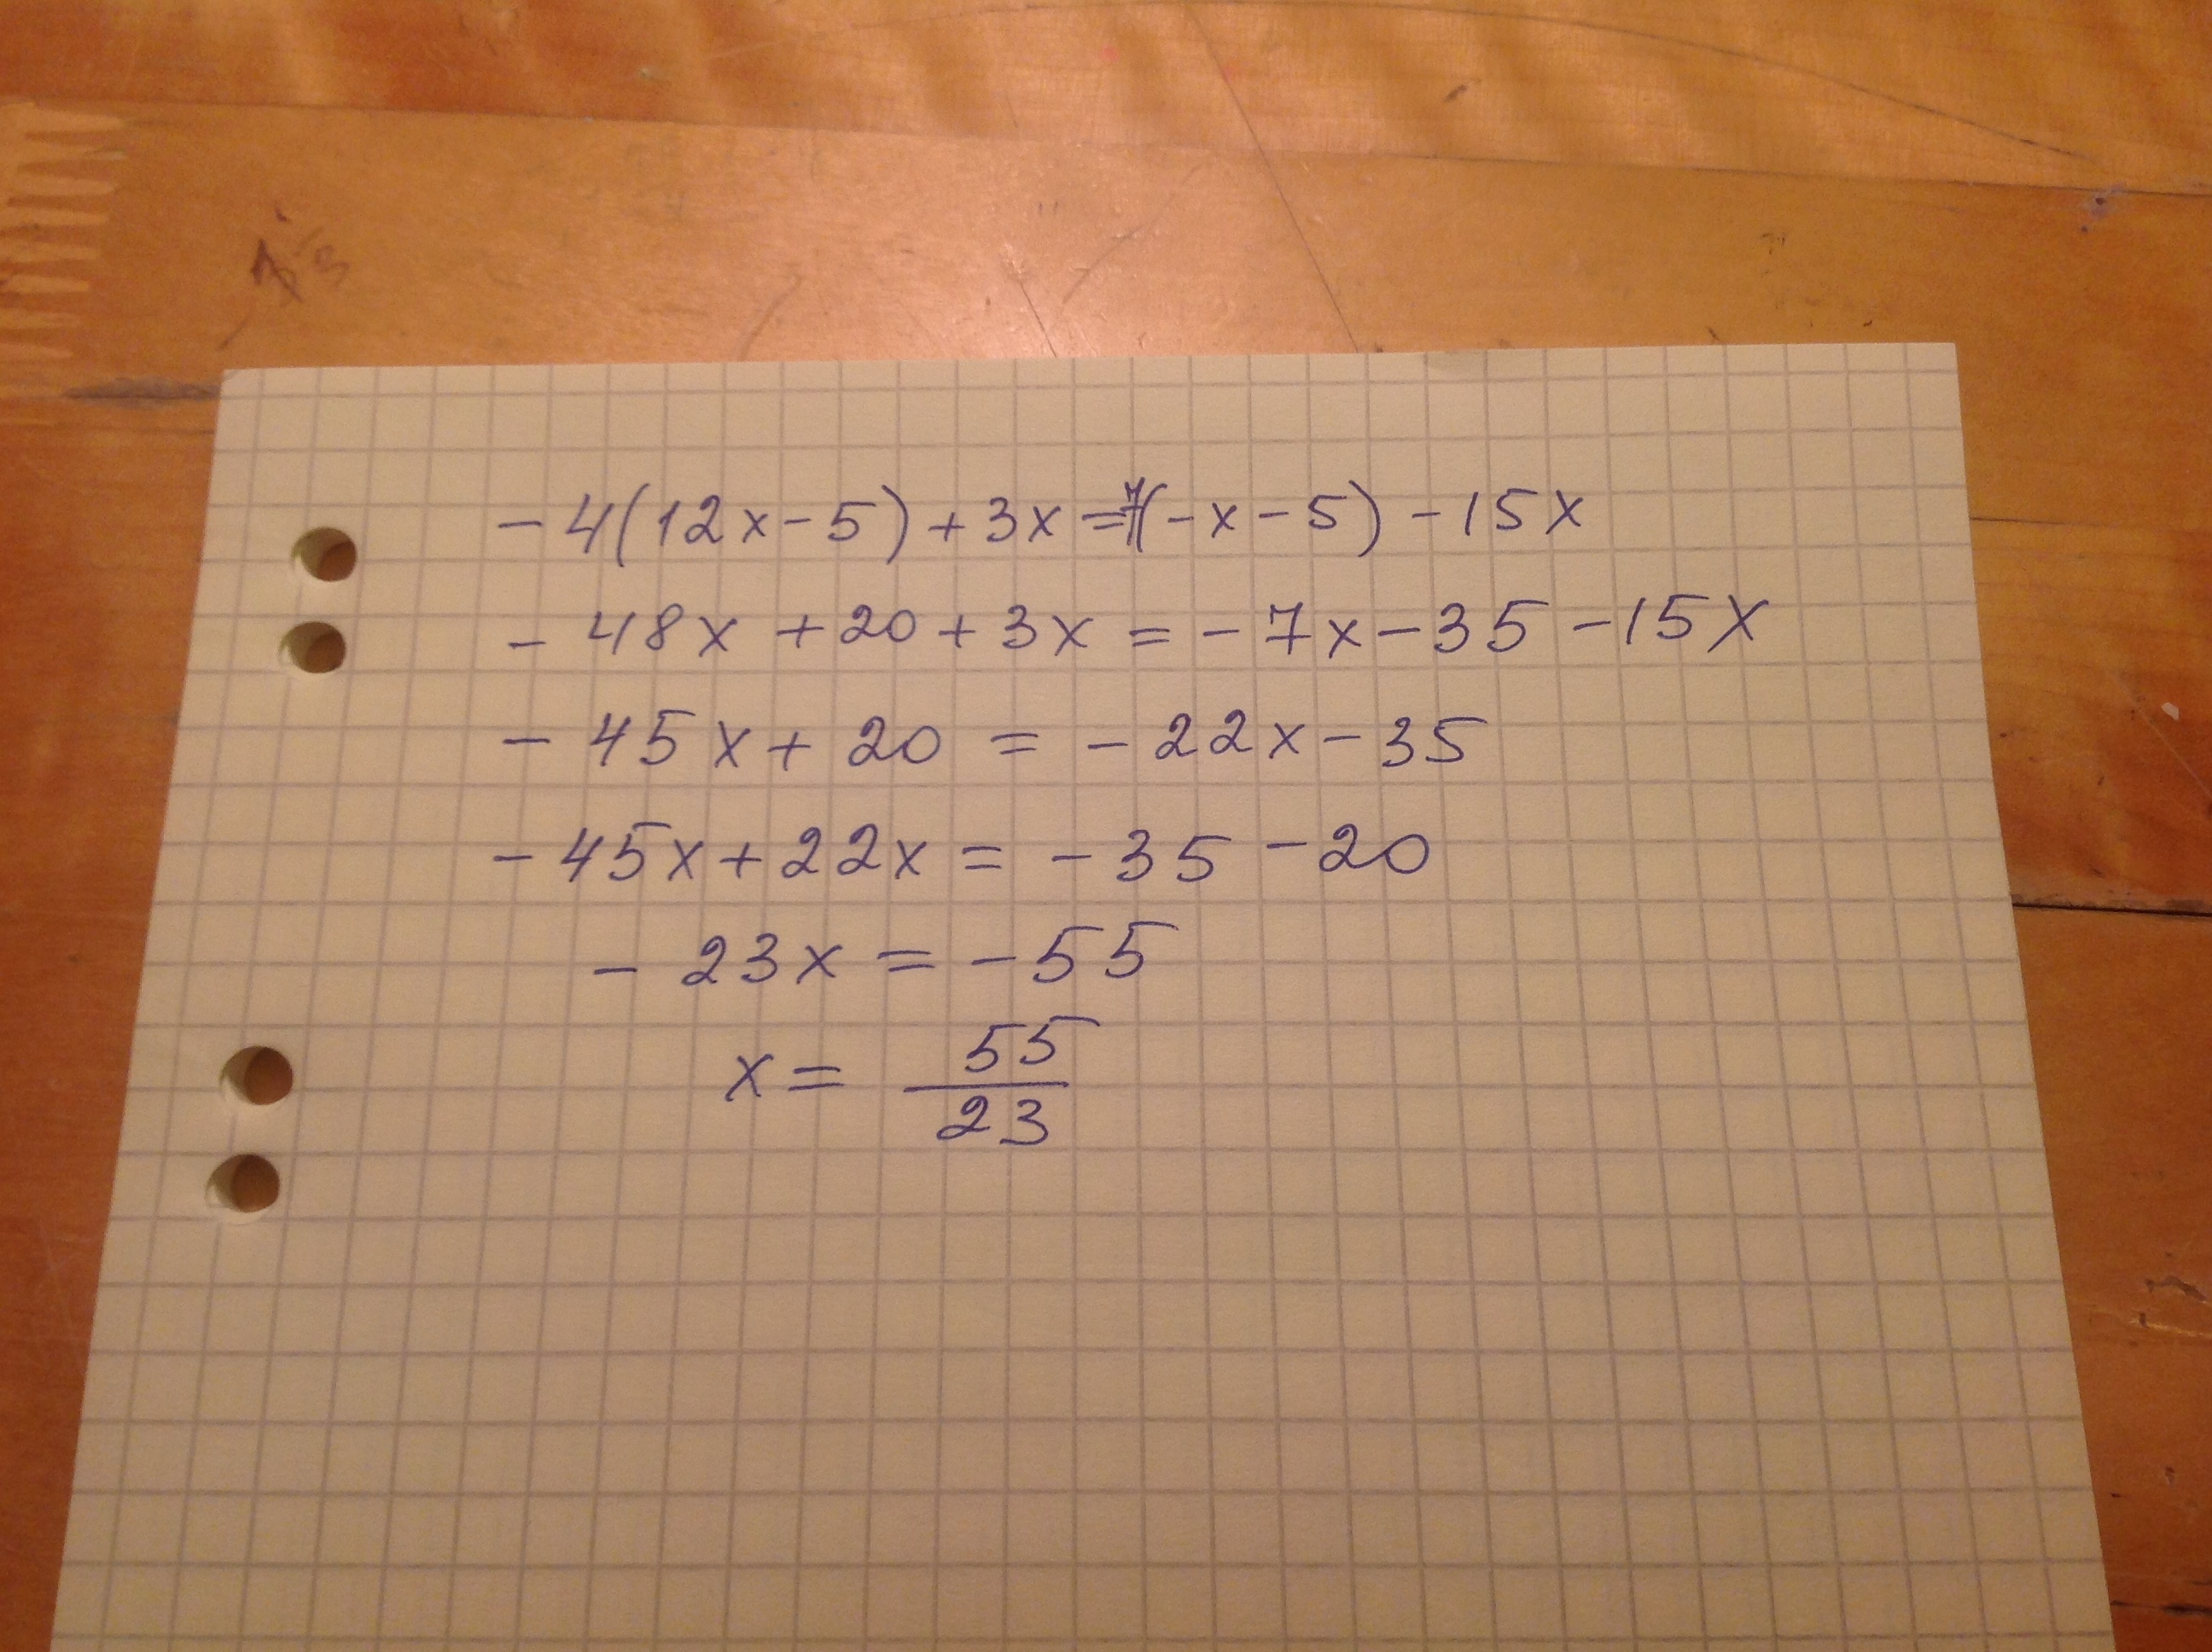 -4(12x-5)+3x=7(-x-5)-15x
-48x+20+3x=-7x-35-15x
-45x+20=-22x-35
-45x+22x=-35-20
-23x=-55
x=55/23